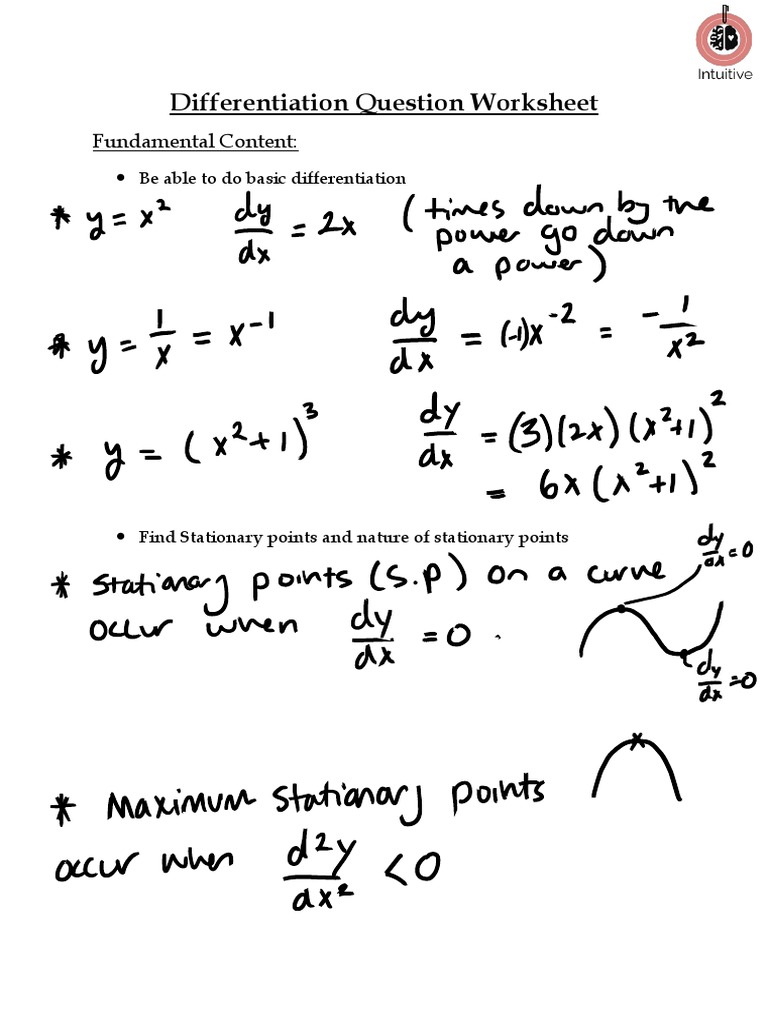 Intuitive
Differentiation Question Worksheet
Fundamental Content:
• Be able to do basic differentiation
* y = x² dy/dx = 2x (times down by the
power go down
a power)
* y = 1/x = x⁻¹ dy/dx = (-1)x⁻² = -1/x²
* y = (x²+1)³ dy/dx = (3)(2x)(x²+1)²
= 6x(x²+1)²
• Find Stationary points and nature of stationary points
dy/dx = 0
* Stationary points (S.P) on a curve
occur when dy/dx = 0.
dy/dx = 0
* Maximum stationary points
occur when d²y/dx² < 0